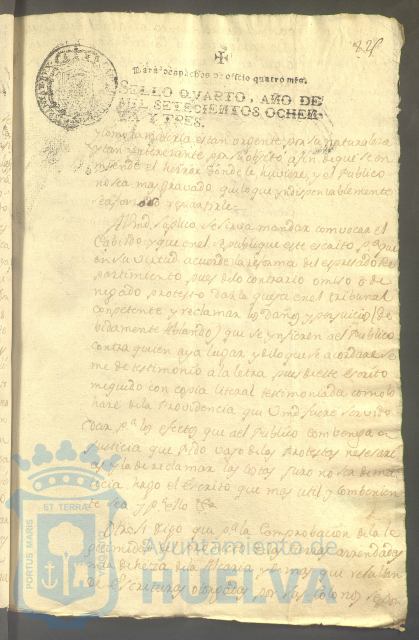 825
Para despachos de oficio quatro mrs.
SELLO QVARTO, AÑO DE
MIL SETECIENTOS OCHEN-
TA Y TRES.
como la materia es tan urgente por su naturaleza
y tan interesante por su objeto a fin de que se en
miende el herror donde le huviere, y el Publico
no sea mas gravado que lo que yndispensablemente
A Vmd suplico se sirva mandar convocar el
Cabildo y que en el se publique este escrito, para que
en su virtud acuerde la reforma del expresado Re
partimiento, pues de lo contrario omiso o de
negado protesto dar la quexa en el tribunal
competente y reclamar los Daños y perjuicios (de
bidamente hablando) que se ynfieren al Publico
contra quien aya lugar, y de lo que se acordare se
me de testimonio a la letra pues de este escrito
seguido con copia literal testimoniada
de la Providencia que Vmd fuere servido
dar p.a los efectos que al Publico combenga en
Justicia que Pido vajo de las Protestas necesari
as y la de reclamar las costas juro no ser de ma
licia hago el Escrito que mas util y combenien
te sea y p.a ello
Otrosi Digo que p.a la Comprobacion de la le
de Escrituras otorgadas por los Colonos
PORTUS MARIS
ET TERRAE
Ayuntamiento de
HUELVA